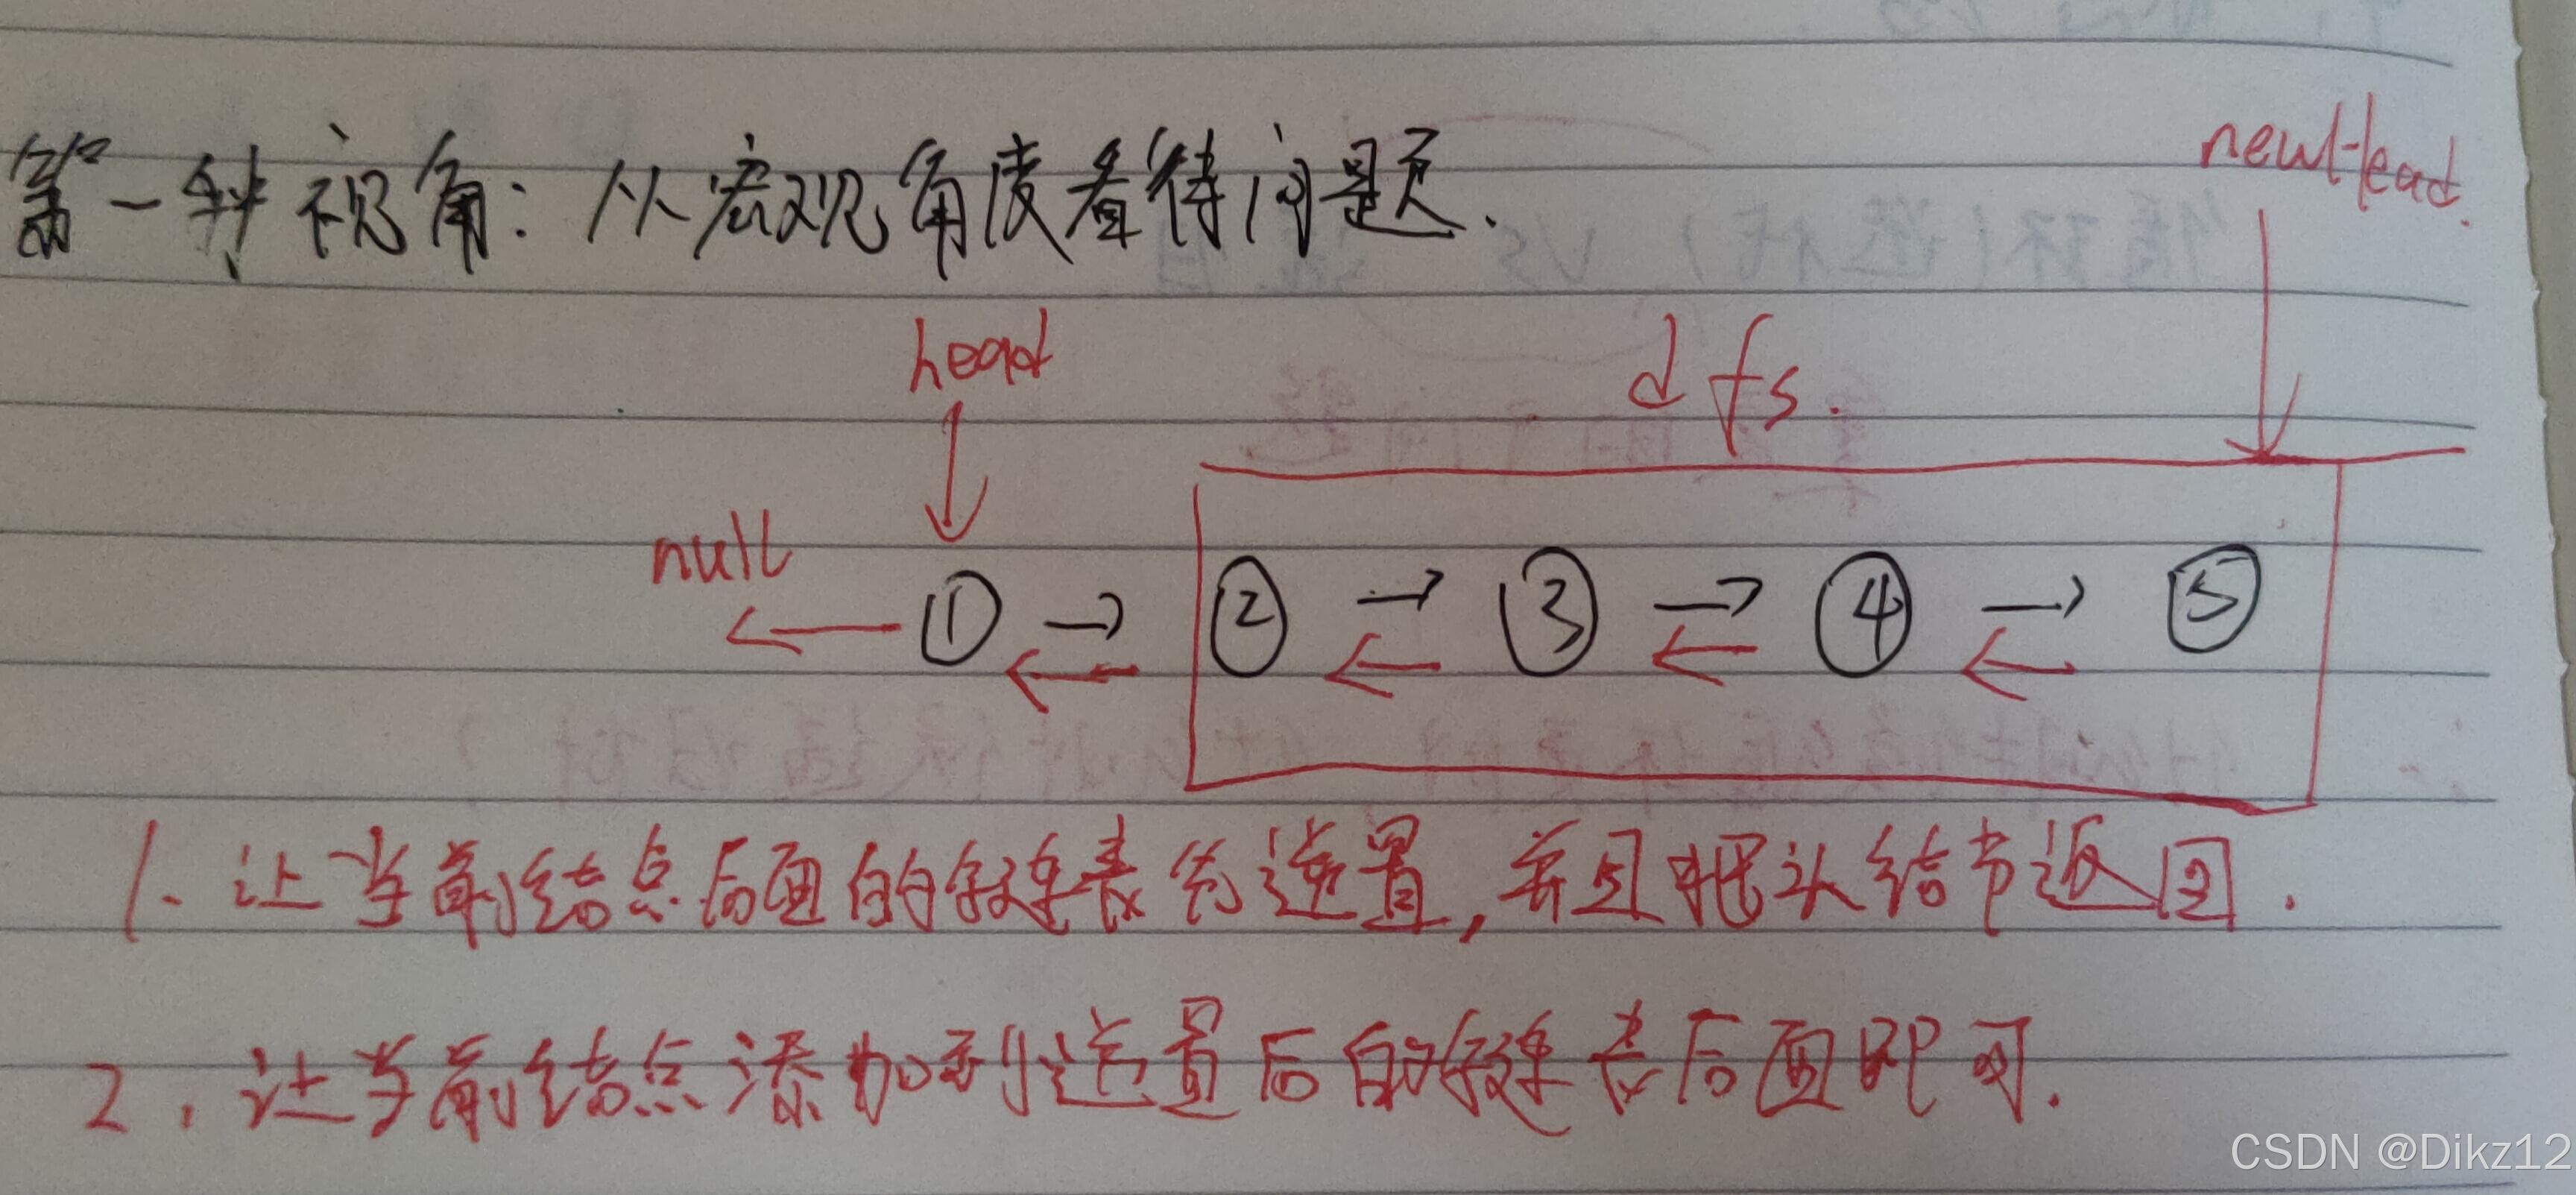 第一种视角：从宏观角度看待问题.
newHead.
head
dfs.
null
① → ② → ③ → ④ → ⑤
← ← ← ← ←
1、让当前结点后面的链表先逆置，并且把头结节返回.
2、让当前结点添加到逆置后的链表后面即可.
CSDN @Dikz12